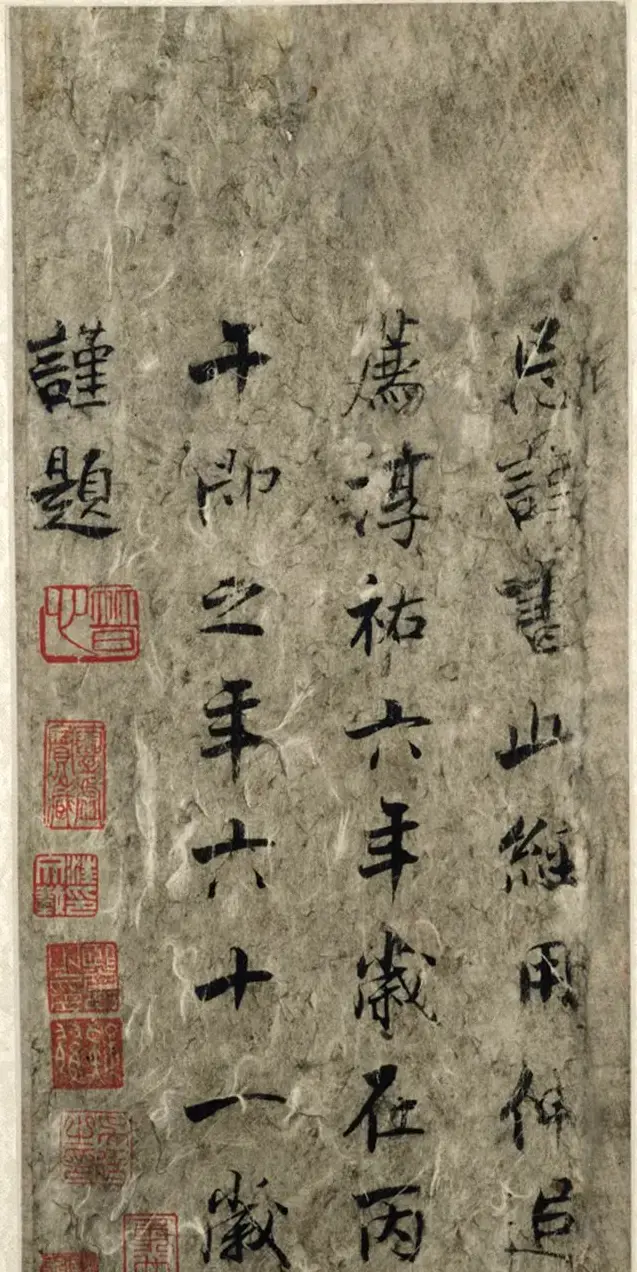 忌謹書此經用伸追
薦淳祐六年歲在丙
午即之年六十一歲
謹題